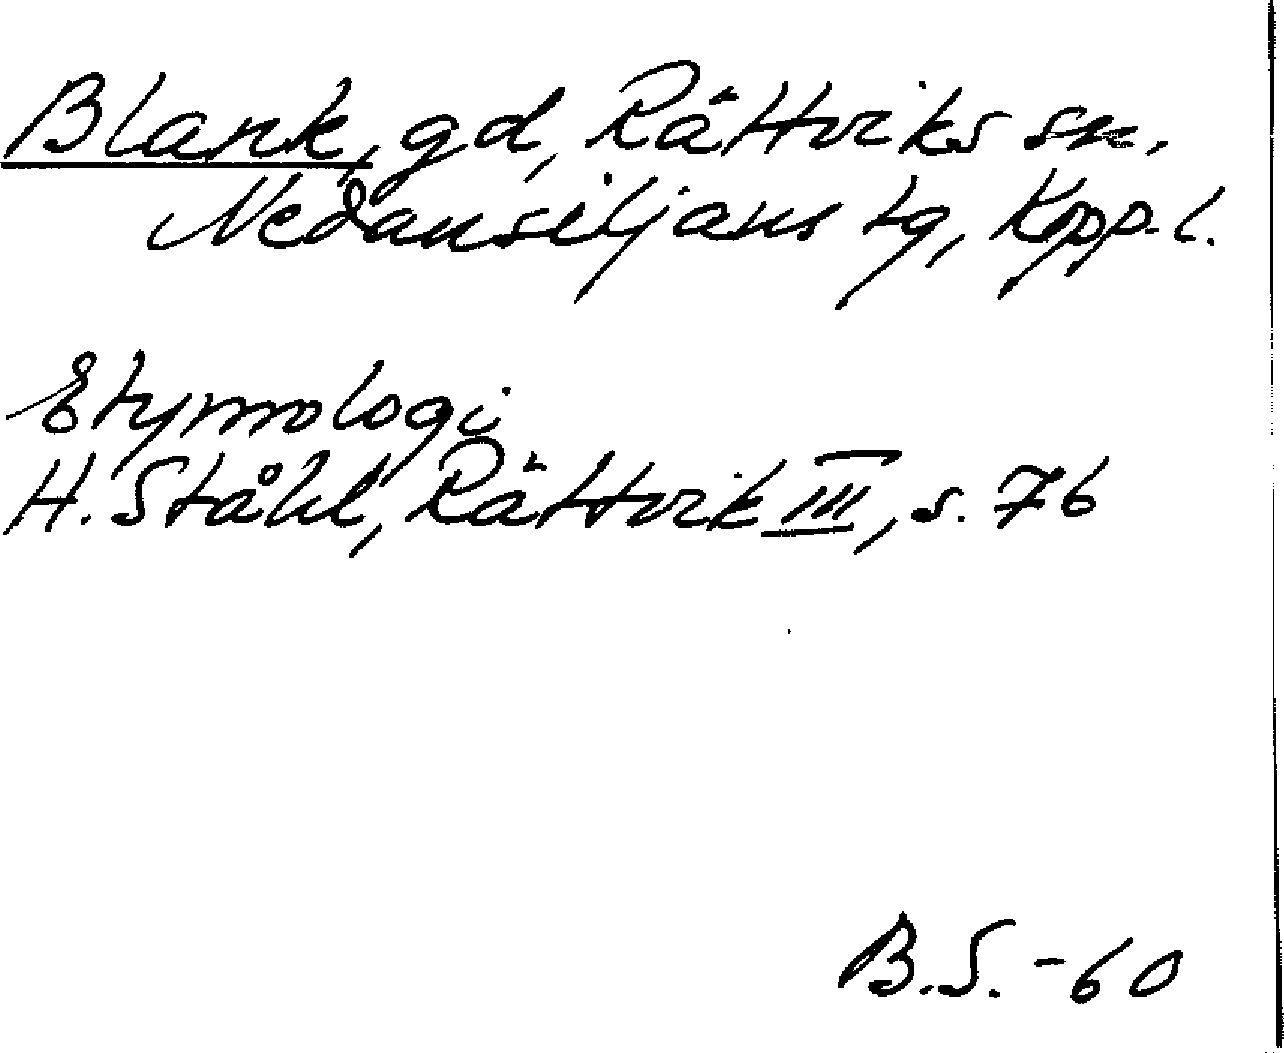 Blank, gd, Rättviks sn.
Nedansiljans tg, Kopp. l.
Etymologi
H. Ståhl, Rättvik III, s. 76
B.S. -60